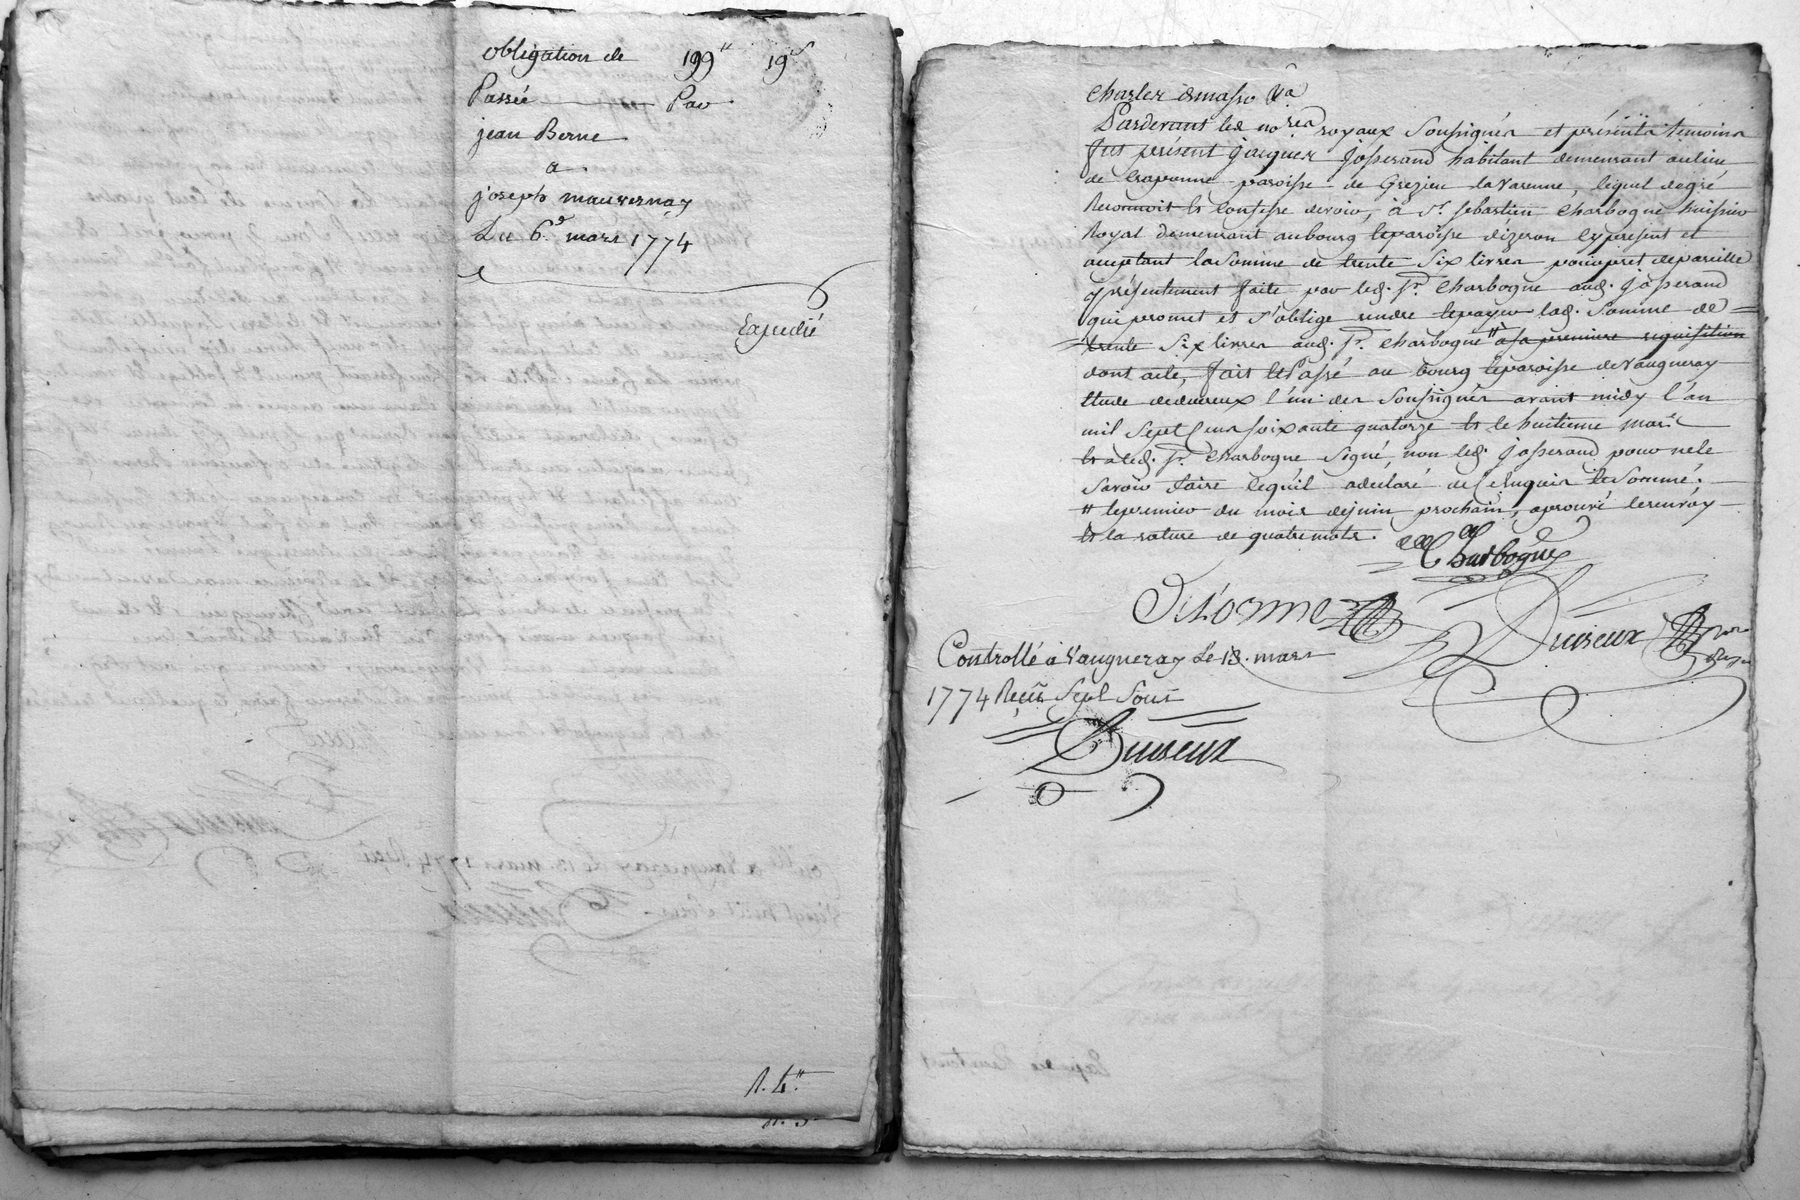 obligation de 199ᵗᵗ 19ˢ
Passée Par
jean Berne
a
joseph mauvernay
Du 6.ᵉ mars 1774
Expedié
Pardevant les no.ʳᵉˢ royaux soussignés et présents temoins
fut présent jacques josserand habitant demeurant au lieu
de Craponne paroisse de Grezieu la Varenne, lequel de gré
Reconnoit et Confesse devoir, à sʳ. sebastien Charbogne huissier
Royal demeurant au bourg et paroisse dizeron cy present et
acceptant la somme de trente six livres pour pret de pareille
présentement faite par led. sʳ. Charbogne aud. josserand
qui promet et s'oblige rendre et payer lad. somme de =
trente six livres aud. sʳ. Charbogne # a la premiere requisition
dont acte, fait et Passé au bourg et paroisse de Vaugneray
Etude de dutreux l'un des soussignés avant midy l'an
mil sept Cens soixante quatorze et le huitieme mars
et a led. sʳ. Charbogne signé, non led. josserand pour ne le
savoir faire lequil a declaré de Ce enquis et sommé.
# le premier du mois de juin prochain, aprouvé le renvoy
et la rature de quatre mots.
Charbogne
Delorme
Controllé à Vaugneray Le 18. mars
1774 Reçu sept sous
N. 4.ᵗᵗ